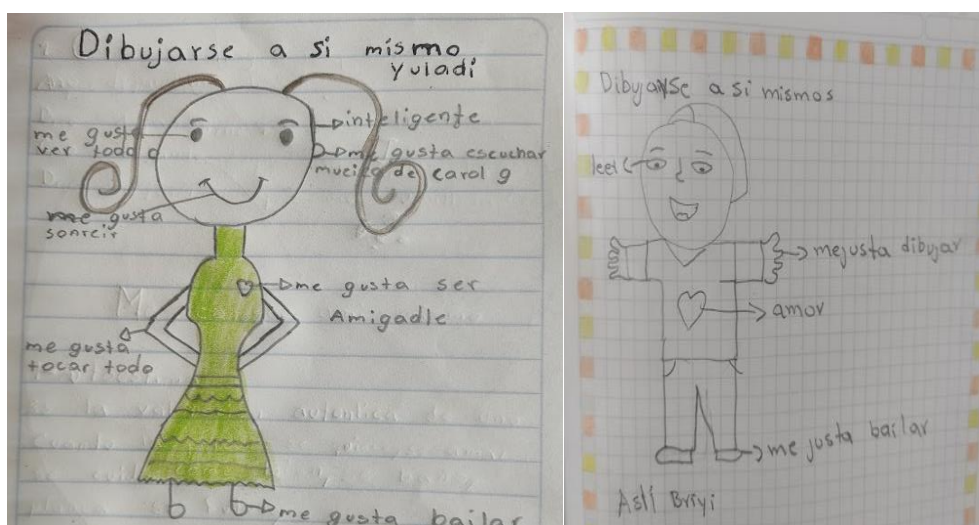 Dibujarse a si mismo
yuladi
me gusta
ver todo
inteligente
me gusta escuchar
mucica de carol g
me gusta
sonreir
me gusta ser
Amigadle
me gusta
tocar todo
me gusta bailar
Dibujarse a si mismos
leer
me justa dibujar
amor
me justa bailar
Aslí Briyi